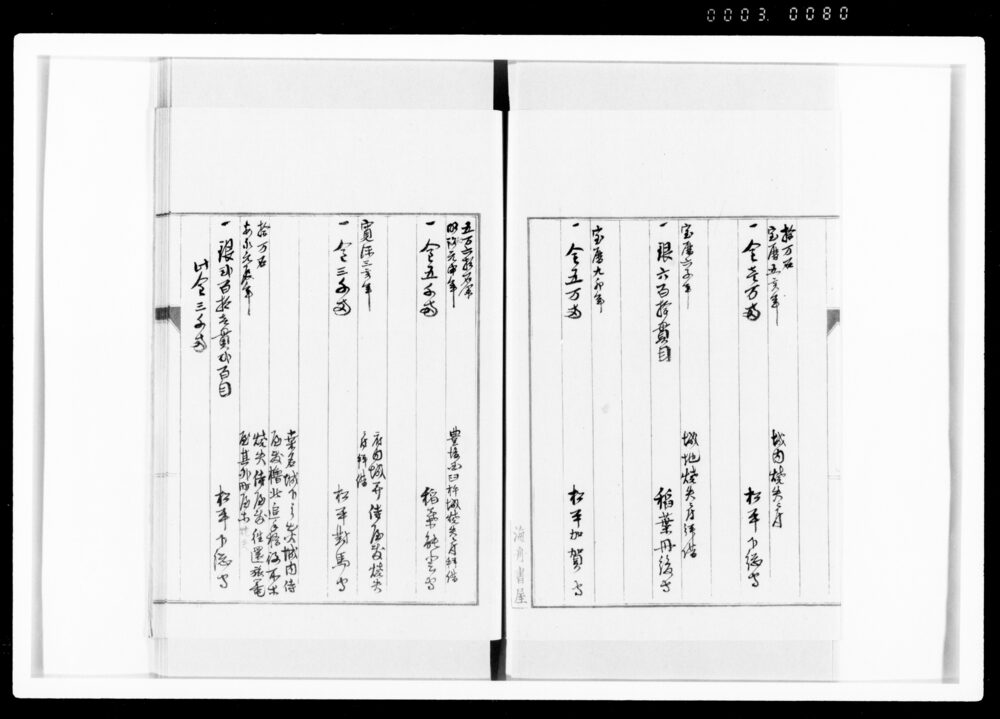 0003. 0080
拾万石
宝暦五亥年
一金壱万両
城内焼失ニ付
松平下総守
宝暦六子年
一銀六百拾貫目
城地焼失ニ付拝借
稲葉丹後守
宝暦九卯年
一金五万両
松平加賀守
海舟書屋
五万六拾石余
明和元申年
一金五千両
豊後国臼杵城焼失ニ付拝借
稲葉能登守
寛保三亥年
一金三千両
府内城并侍屋敷焼失
ニ付拝借
松平対馬守
拾万石
安永元辰年
一銀弐百拾壱貫弐百目
此金三千両
桑名城下出火城内侍
屋敷櫓
焼失侍屋敷住還
松平下総守